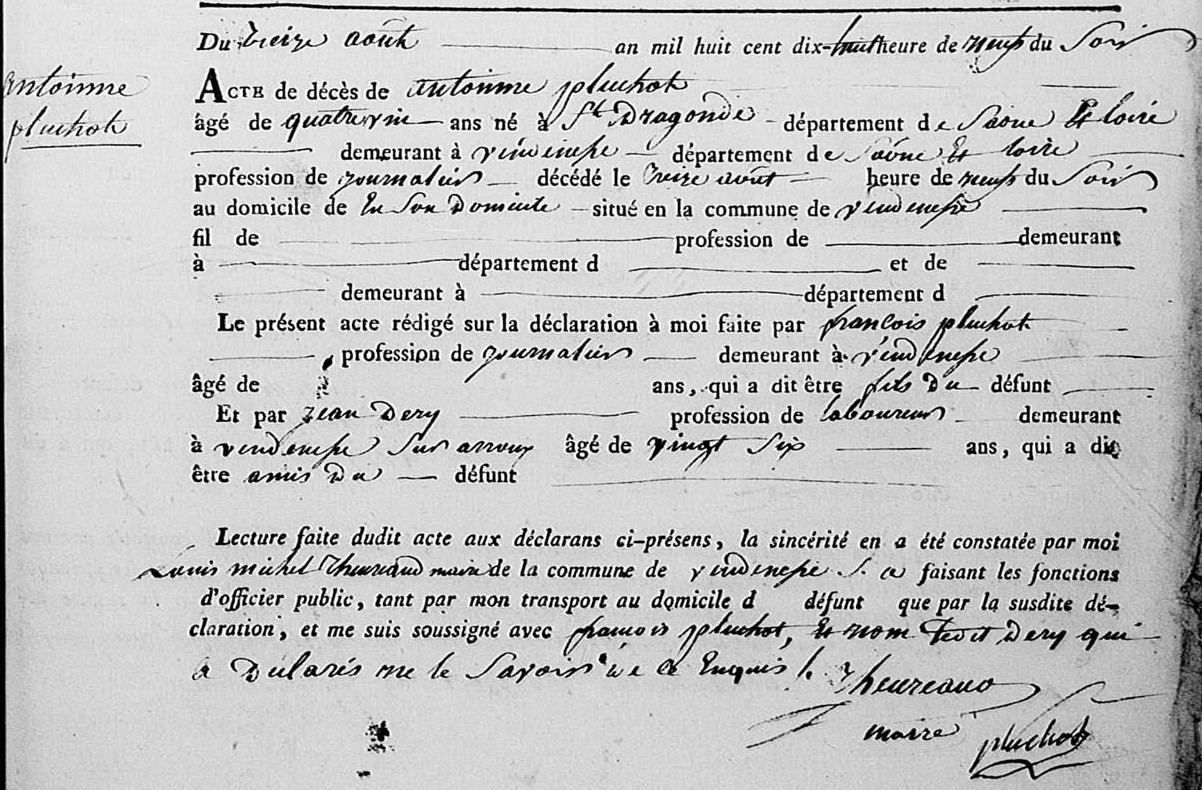 Du treize août an mil huit cent dix-huit heure de neuf du Soir
antoinne
pluchot
ACTE de décès de antoinne pluchot
âgé de ans né à St Dragonde département de Saone Et loire
demeurant à vendenesse département de Saône Et loire
profession de journalier décédé le treize août heure de neuf du Soir
au domicile de En Son Domicile situé en la commune de vendenesse
fil de profession de demeurant
à département d et de
demeurant à département d
Le présent acte rédigé sur la déclaration à moi faite par françois pluchot
profession de journalier demeurant à vendenesse
âgé de ans, qui a dit être fils Du défunt
Et par jean Dery profession de laboureur demeurant
à vendenesse Sur arroux âgé de vingt Six ans, qui a dit
être amis Du défunt
Lecture faite dudit acte aux déclarans ci-présens, la sincérité en a été constatée par moi
Louis michel Theureaud maire de la commune de vendenesse S. a faisant les fonctions
d'officier public, tant par mon transport au domicile d défunt que par la susdite dé-
claration, et me suis soussigné avec françois pluchot, Et nom Ledit Dery qui
a Déclarés ne le Savoir De ce Enquis
Theureaud
maire
pluchot